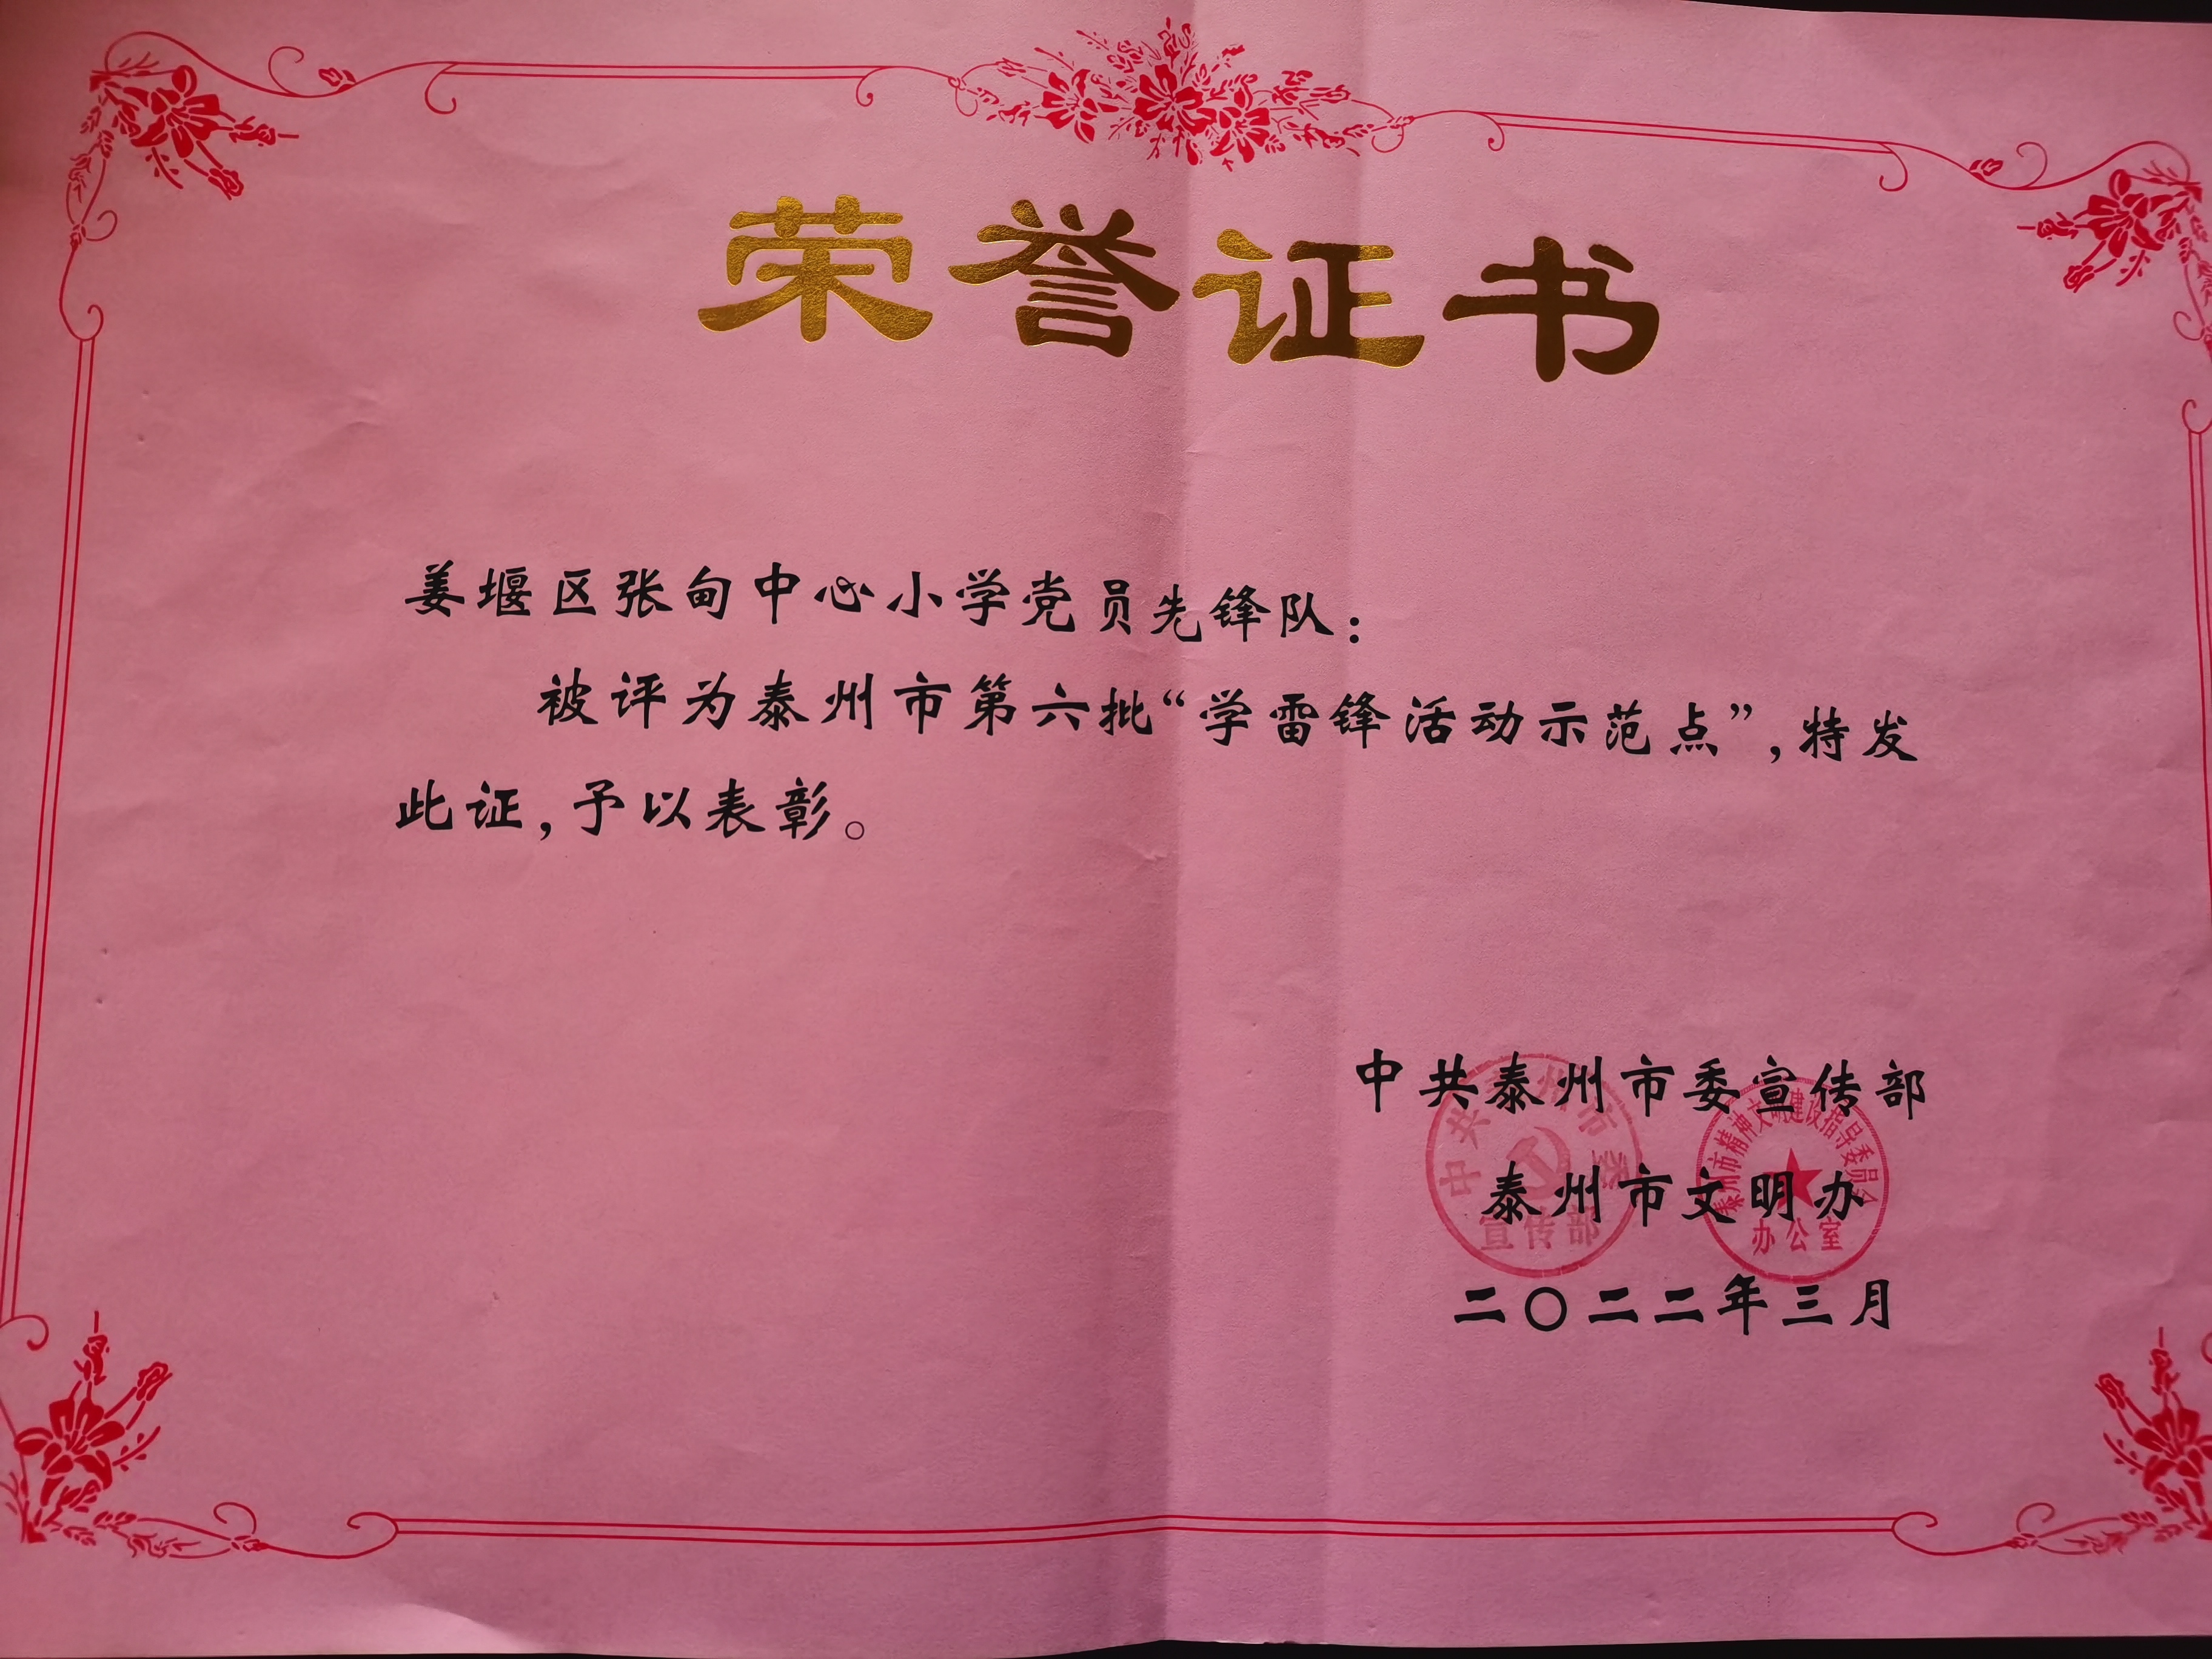 荣誉证书
姜堰区张甸中心小学党员先锋队：
被评为泰州市第六批“学雷锋活动示范点”，特发
此证，予以表彰。
中共泰州市委宣传部
泰州市文明办
二〇二二年三月
中共泰州市委
宣传部
泰州市精神文明建设指导委员会
办公室